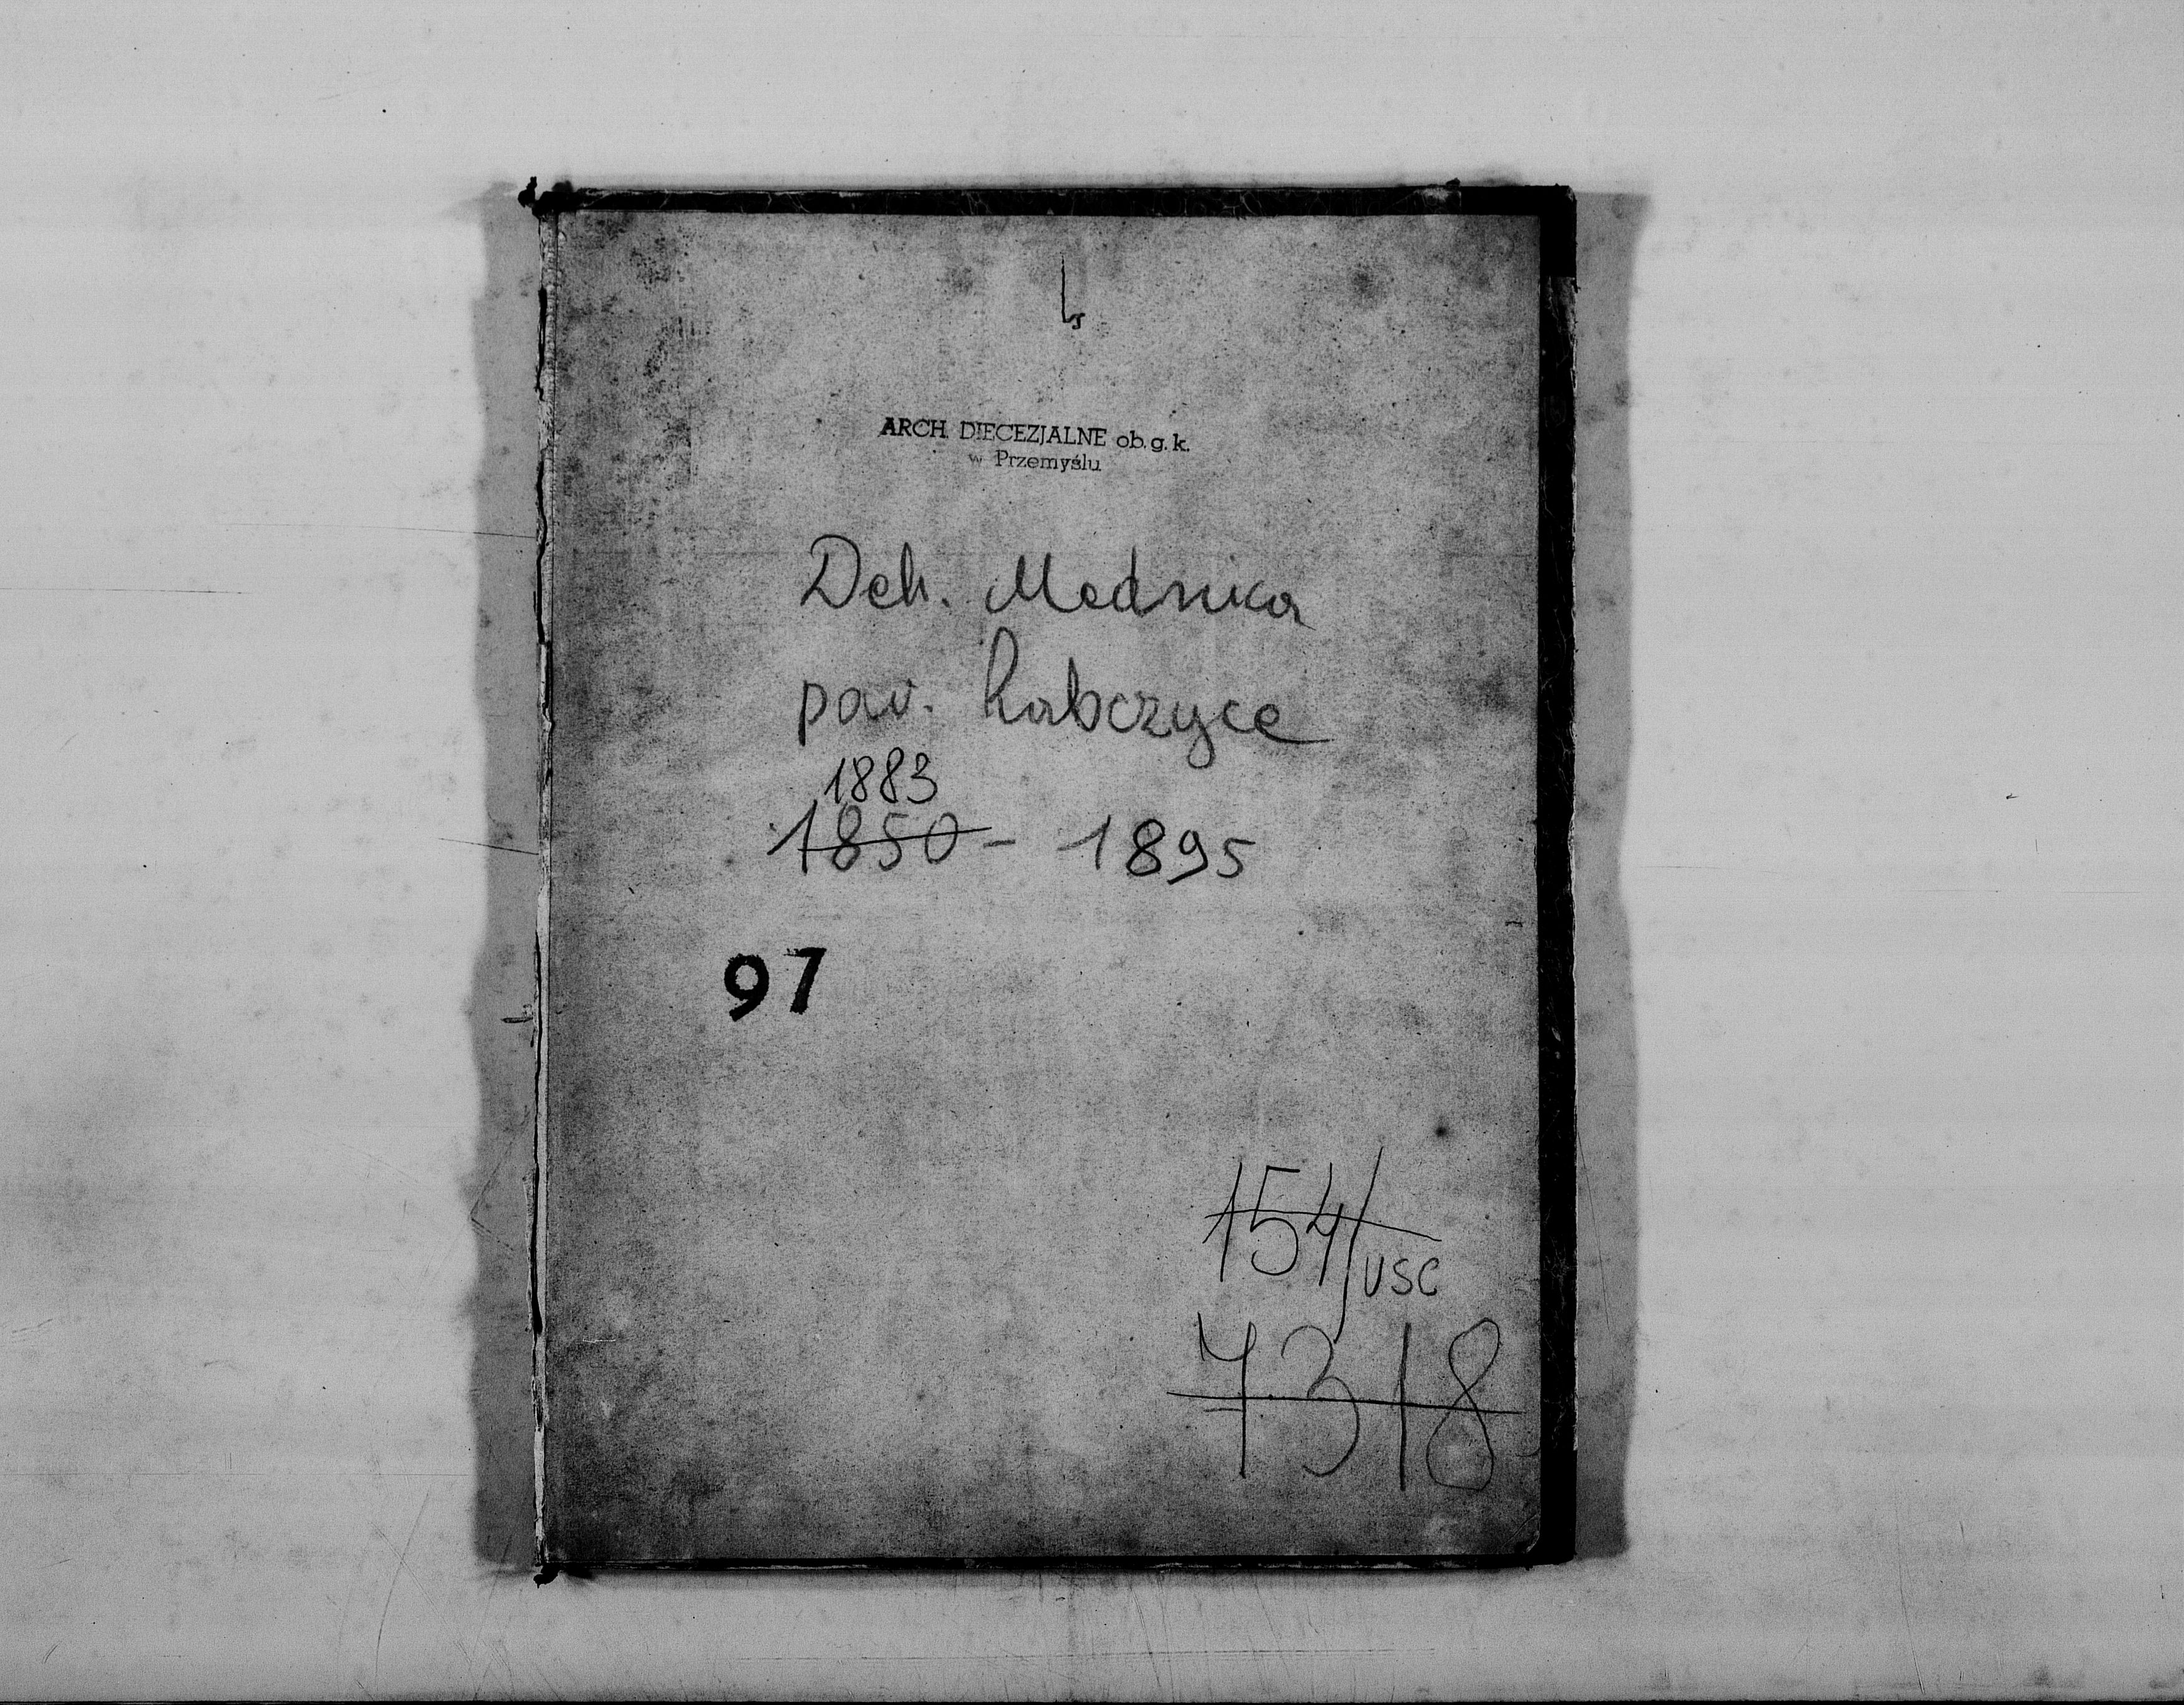 ARCH. DIECEZJALNE ob. g. k.
w Przemyślu
Dek. Mednika
par. Rabczyce
1883
1850 - 1895
97
154/USC
7318